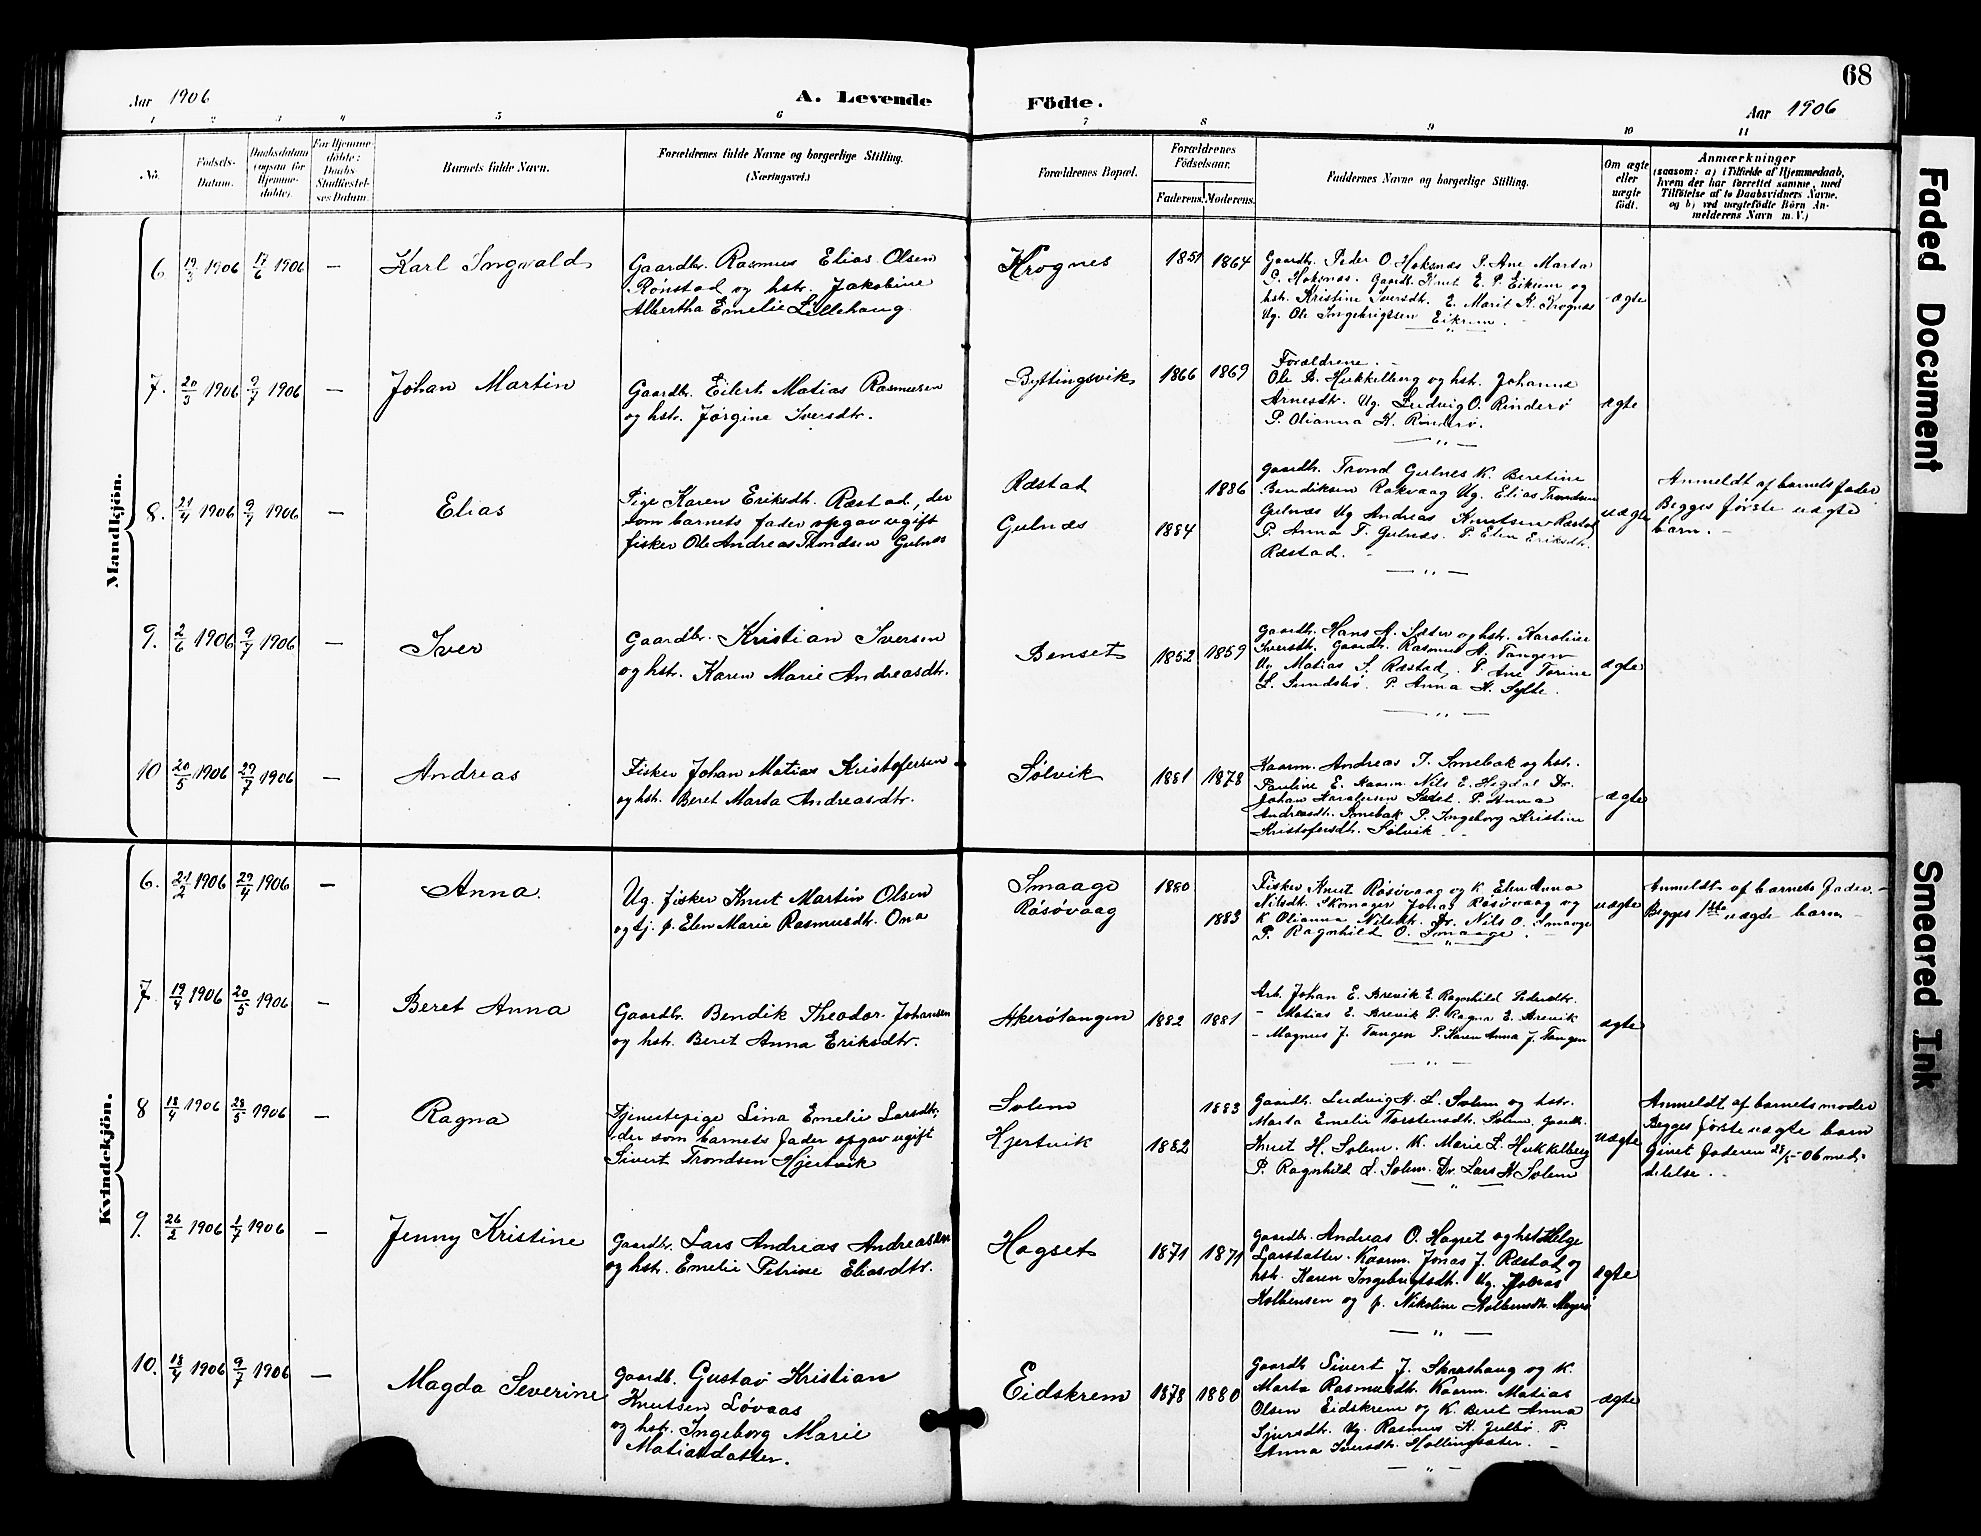 68
Aar 1906
A. Levende
Födte.
Aar 1906
1 2 3 4 5 6 7 8 9 10 11
No.
Fødsels-
Datum.
Daabsdatum
(ogsaa for
Hjemme-
døbte).
For Hjemme-
døbte:
Daabs
Stadfæstel-
ses Datum.
Barnets fulde Navn.
Forældrenes fulde Navne og borgerlige Stilling.
(Næringsvei.)
Forældrenes Bopæl.
Forældrenes
Födselsaar.
Faderens. Moderens.
Faddernes Navne og borgerlige Stilling.
Om ægte
eller
uægte
födt.
Anmærkninger
(saasom: a) i Tilfælde af Hjemmedaab,
hvem der har forrettet samme, med
Tilföielse af to Daabsvidners Navne.
og b) ved uægtefödte Börn An-
melderens Navn m. V.)
Mandkjön.
6 19/3 1906 17/6 1906 — Karl Ingvald
Gaardbr. Rasmus Elias Olsen
Rønstad og hstr. Jakobine
Albertha Emelie Lillehaug.
Krognes 1851 1864
Gaardbr. Peder O. Hoksnæs P. Ane Marta
G. Hoksnæs. Gaardb. Knut E. P. Eikrem og
hstr. Kristine Iversdt. E. Marit K. Krognæs
Ug. Ole Ingebrigtsen Eikrem.
ægte
7. 20/3 1906 9/7 1906 — Johan Martin
Gaardbr. Eilert Matias Rasmussen
og hstr. Jørgine Iversdtr.
Byttingsvik 1866 1869
Forældrene.
Ole A. Hukkelberg og hstr. Johanne
Arnesdtr. Ug. Ludvig O. Rinderø
P. Olianna K. Rinderø.
ægte
8. 21/4 1906 9/7 1906 — Elias
Pige Karen Eriksdt. Ræstad, der
som barnets fader opgav ugift
fisker Ole Andreas Trondsen Gulnæs
Ræstad 1886
Gulnæs 1884
Gaardbr. Trond Gulnes K. Beretine
Bendiksen Rakvaag Ug. Elias Trondsen
Gulnæs Ug Andreas Knutsen Ræstad
P. Anna T. Gulnæs. P. Elen Eriksdtr.
Ræstad.
uægte
Anmeldt af barnets fader
Begges første uægte
barn.
9. 2/6 1906 9/7 1906 — Iver
Gaardbr. Kristian Iversen
og hstr. Karen Marie Andreasdtr.
Benset 1852 1859
Gaardbr. Hans A. Sæter og hstr. Karoline
Iversdt. Gaardb. Rasmus A. Tangen
Ug. Matias S. Ræstad, P. Ane Torine
L. Sundsbø. P. Anna H. Sylte.
ægte
10 20/5 1906 29/7 1906 — Andreas
Fisker Johan Matias Kristofersen
og hstr. Beret Marta Andreasdtr.
Sølvik 1881 1878
Kaarm. Andreas T. Smebak og hstr.
Pauline E. Kaarm. Nils E. Hegdal Dr.
Johan Sæset. P. Anna
Andreasdt. Smebak P. Ingeborg Kristine
Kristofersdt. Sølvik
ægte
Kvindekjön.
6. 21/2 1906 29/4 1906 — Anna.
Ug. fisker Knut Martin Olsen
og tj. p. Elen Marie Rasmusdtr. Ona
Smaage 1880
Røsøvaag 1883
Fisker Knut Røsøvaag og K. Elen Anna
Nilsdt. Skomager Jonas Røsøvaag og
K Olianna Dr. Nils O. Smaage
P. Ragnhild O. Smaage.
uægte
Anmeldt af barnets fader.
Begges 1ste uægte barn
7. 19/4 1906 20/5 1906 — Beret Anna
Gaardbr. Bendik Theodor Johansen
og hstr. Beret Anna Eriksdtr.
Akerøtangen 1882 1881
Arb. Johan E. Brevik E. Ragnhild Pedersdtr.
– Matias E. Brevik P. Ragna E. Brevik
– Magnus J. Tangen P. Karen Anna J. Tangen
ægte
8 18/4 1906 28/5 1906 — Ragna
Tjenestepige Lina Emelie Larsdtr,
der som barnets fader opgav ugift
Sivert Trondsen Hjertvik
Solem 1883
Hjertvik 1882
Gaardb. Ludvig H. L. Solem og hstr.
Marta Emelie Torstensdt. Solem. Gaardb.
Knut H. Solem. K. Marie L. Hukkelberg
P. Ragnhild L. Solem. Dr. Lars H Solem
uægte
Anmeldt af barnets moder
Begges første uægte barn
Givet faderen 28/5 06 med-
delelse.
9. 26/2 1906 1/7 1906 — Jenny Kristine
Gaardbr. Lars Andreas Andreassen
og hstr. Emelie Petrine Eliasdtr.
Hagset 1871 1871
Gaardbr. Andreas O. Hagset og hstr Helge
Larsdatter. Kaarm. Jonas J. Ræstad og
hstr. Karen Ingebrigtsdt. Ug. Johns
Kolbensen og p. Nikoline Kolbensdt. Magerø
ægte
10. 18/4 1906 9/7 1906 — Magda Severine
Gaardb. Gustav Kristian
Knutsen Løvaas
og hstr. Ingeborg Marie
Matiasdatter.
Eidskrem 1878 1880
Gaardb Sivert J. Skarshaug og K.
Marta Rasmusdt. Kaarm. Matias
Olsen Eidskrem og K. Beret Anna
Sjursdt. Ug. Rasmus K. Julbø. P.
Anna Iversdt. Hollingsæter.
ægte
Faded Document
Smeared Ink